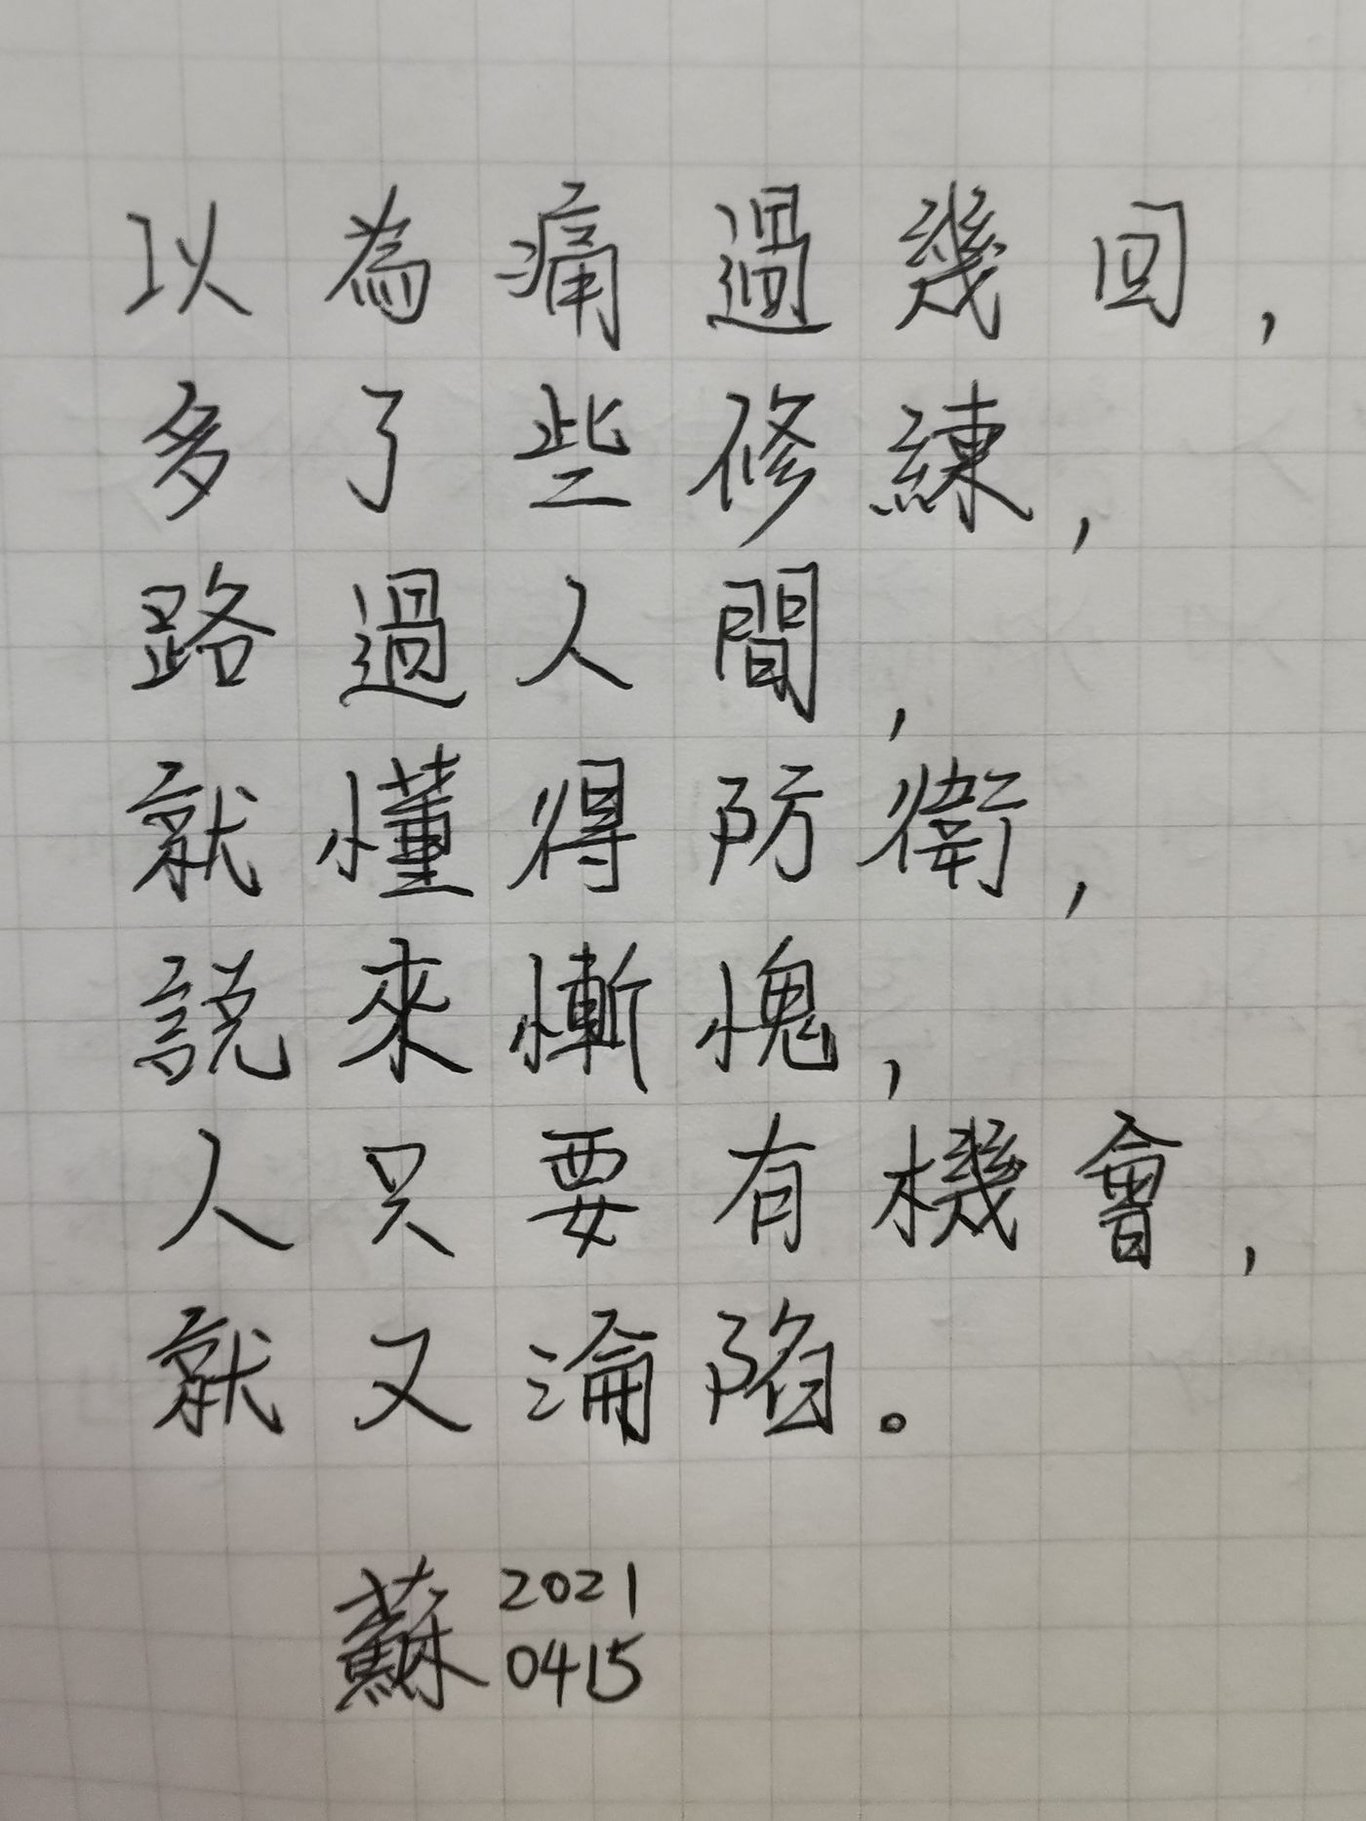 以為痛過幾回，
多了些修練，
路過人間，
就懂得防衛，
說來慚愧，
人只要有機會，
就又淪陷。
蘇 2021
0415